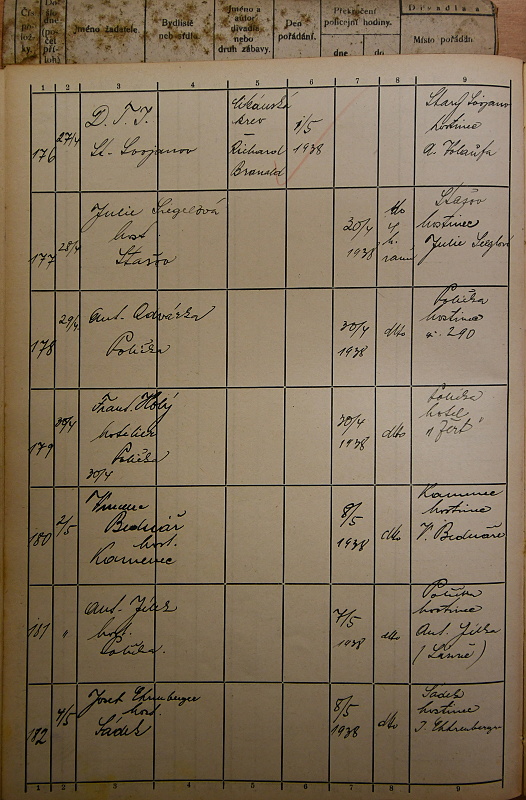 Jméno žadatele
Bydliště
Jméno a
autor
divadla
nebo
druh zábavy.
Den
pořádání.
Překročení
policejní hodiny.
dne
do
Divadla a
Místo pořádání
1 2 3 4 5 6 7 8 9
176
27/4
D. T. J.
St. Svojanov
Cikánská
krev
Richard
Branald
1/5
1938
Starý Svojanov
hostinec
177
28/4
Julie
host.
Stašov
30/4
1938
do
4
h.
ranní
Stašov
hostinec
Julie
178
29/4
Ant. Odvárka
Polička
30/4
1938
dtto
Polička
hostinec
č. 290
179
30/4
Frant. Holý
hoteliér
Polička
30/4
30/4
1938
dtto
Polička
hotel
180
2/5
Bednář
host.
Kamenec
8/5
1938
dtto
Kamenec
hostinec
V. Bednáře
181
"
Ant. Jílek
host.
Polička.
7/5
1938
dtto
Polička
hostinec
Ant. Jílka
182
4/5
Josef Ehrenberger
host.
Sádek
8/5
1938
dtto
Sádek
hostinec
J. Ehrenberger
1 2 3 4 5 6 7 8 9